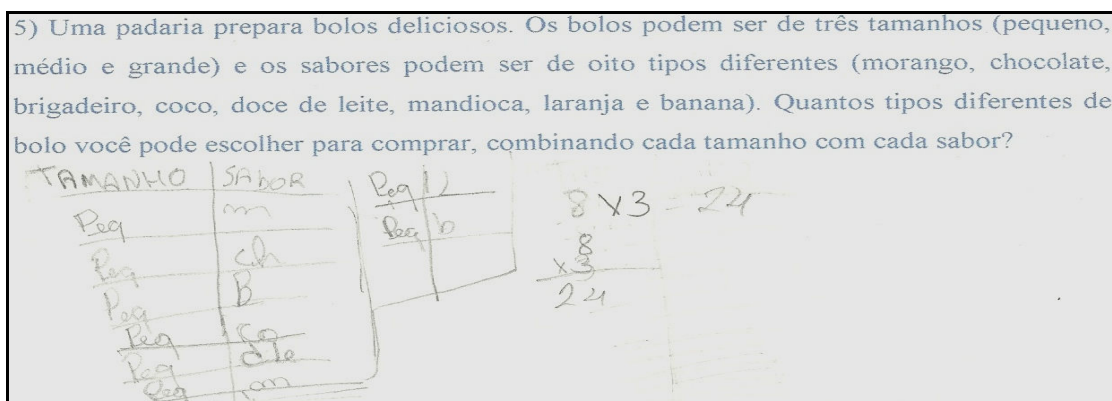 5) Uma padaria prepara bolos deliciosos. Os bolos podem ser de três tamanhos (pequeno,
médio e grande) e os sabores podem ser de oito tipos diferentes (morango, chocolate,
brigadeiro, coco, doce de leite, mandioca, laranja e banana). Quantos tipos diferentes de
bolo você pode escolher para comprar, combinando cada tamanho com cada sabor?
TAMANHO SABOR
Peq m
Peq ch
Peq B
Peq Co
Peq dle
Peq m
Peq
Peq b
8 x 3 = 24
8
x 3
24